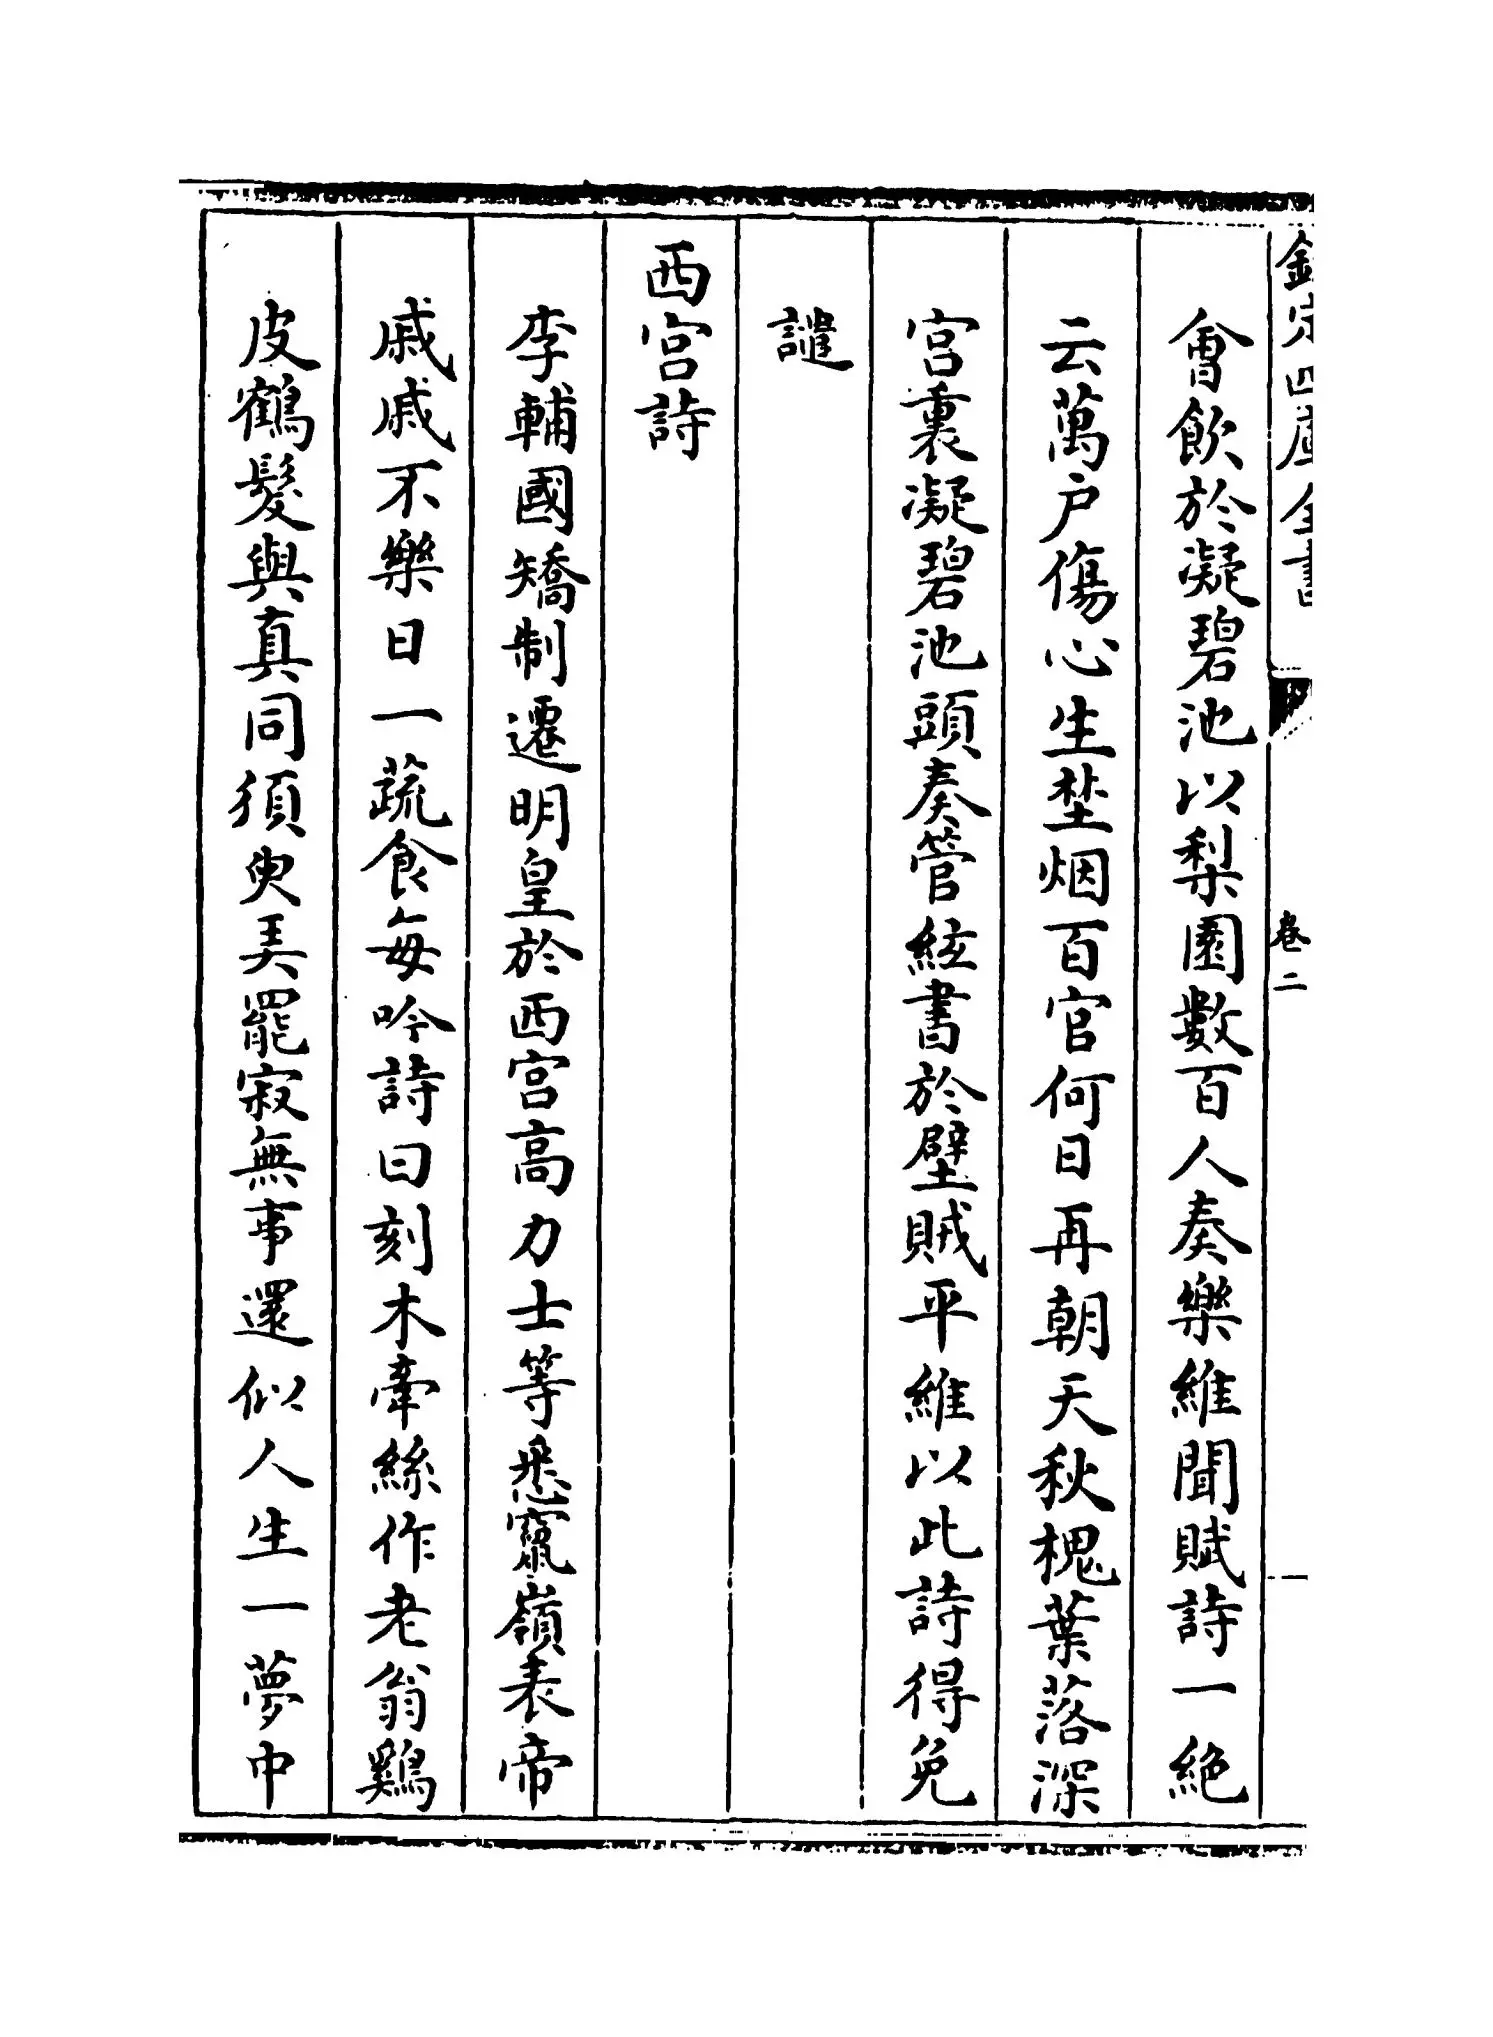 欽定四庫全書
卷二
會飲於凝碧池以梨園數百人奏樂維聞賦詩一絶
云萬户傷心生埜烟百官何日再朝天秋槐葉落深
宫裏凝碧池頭奏管絃書於壁賊平維以此詩得免
譴
西宫詩
李輔國矯制遷明皇於西宫高力士等悉竄嶺表帝
戚戚不樂日一蔬食每吟詩曰刻木牽絲作老翁鷄
皮鶴髮與真同須臾弄罷寂無事還似人生一夢中